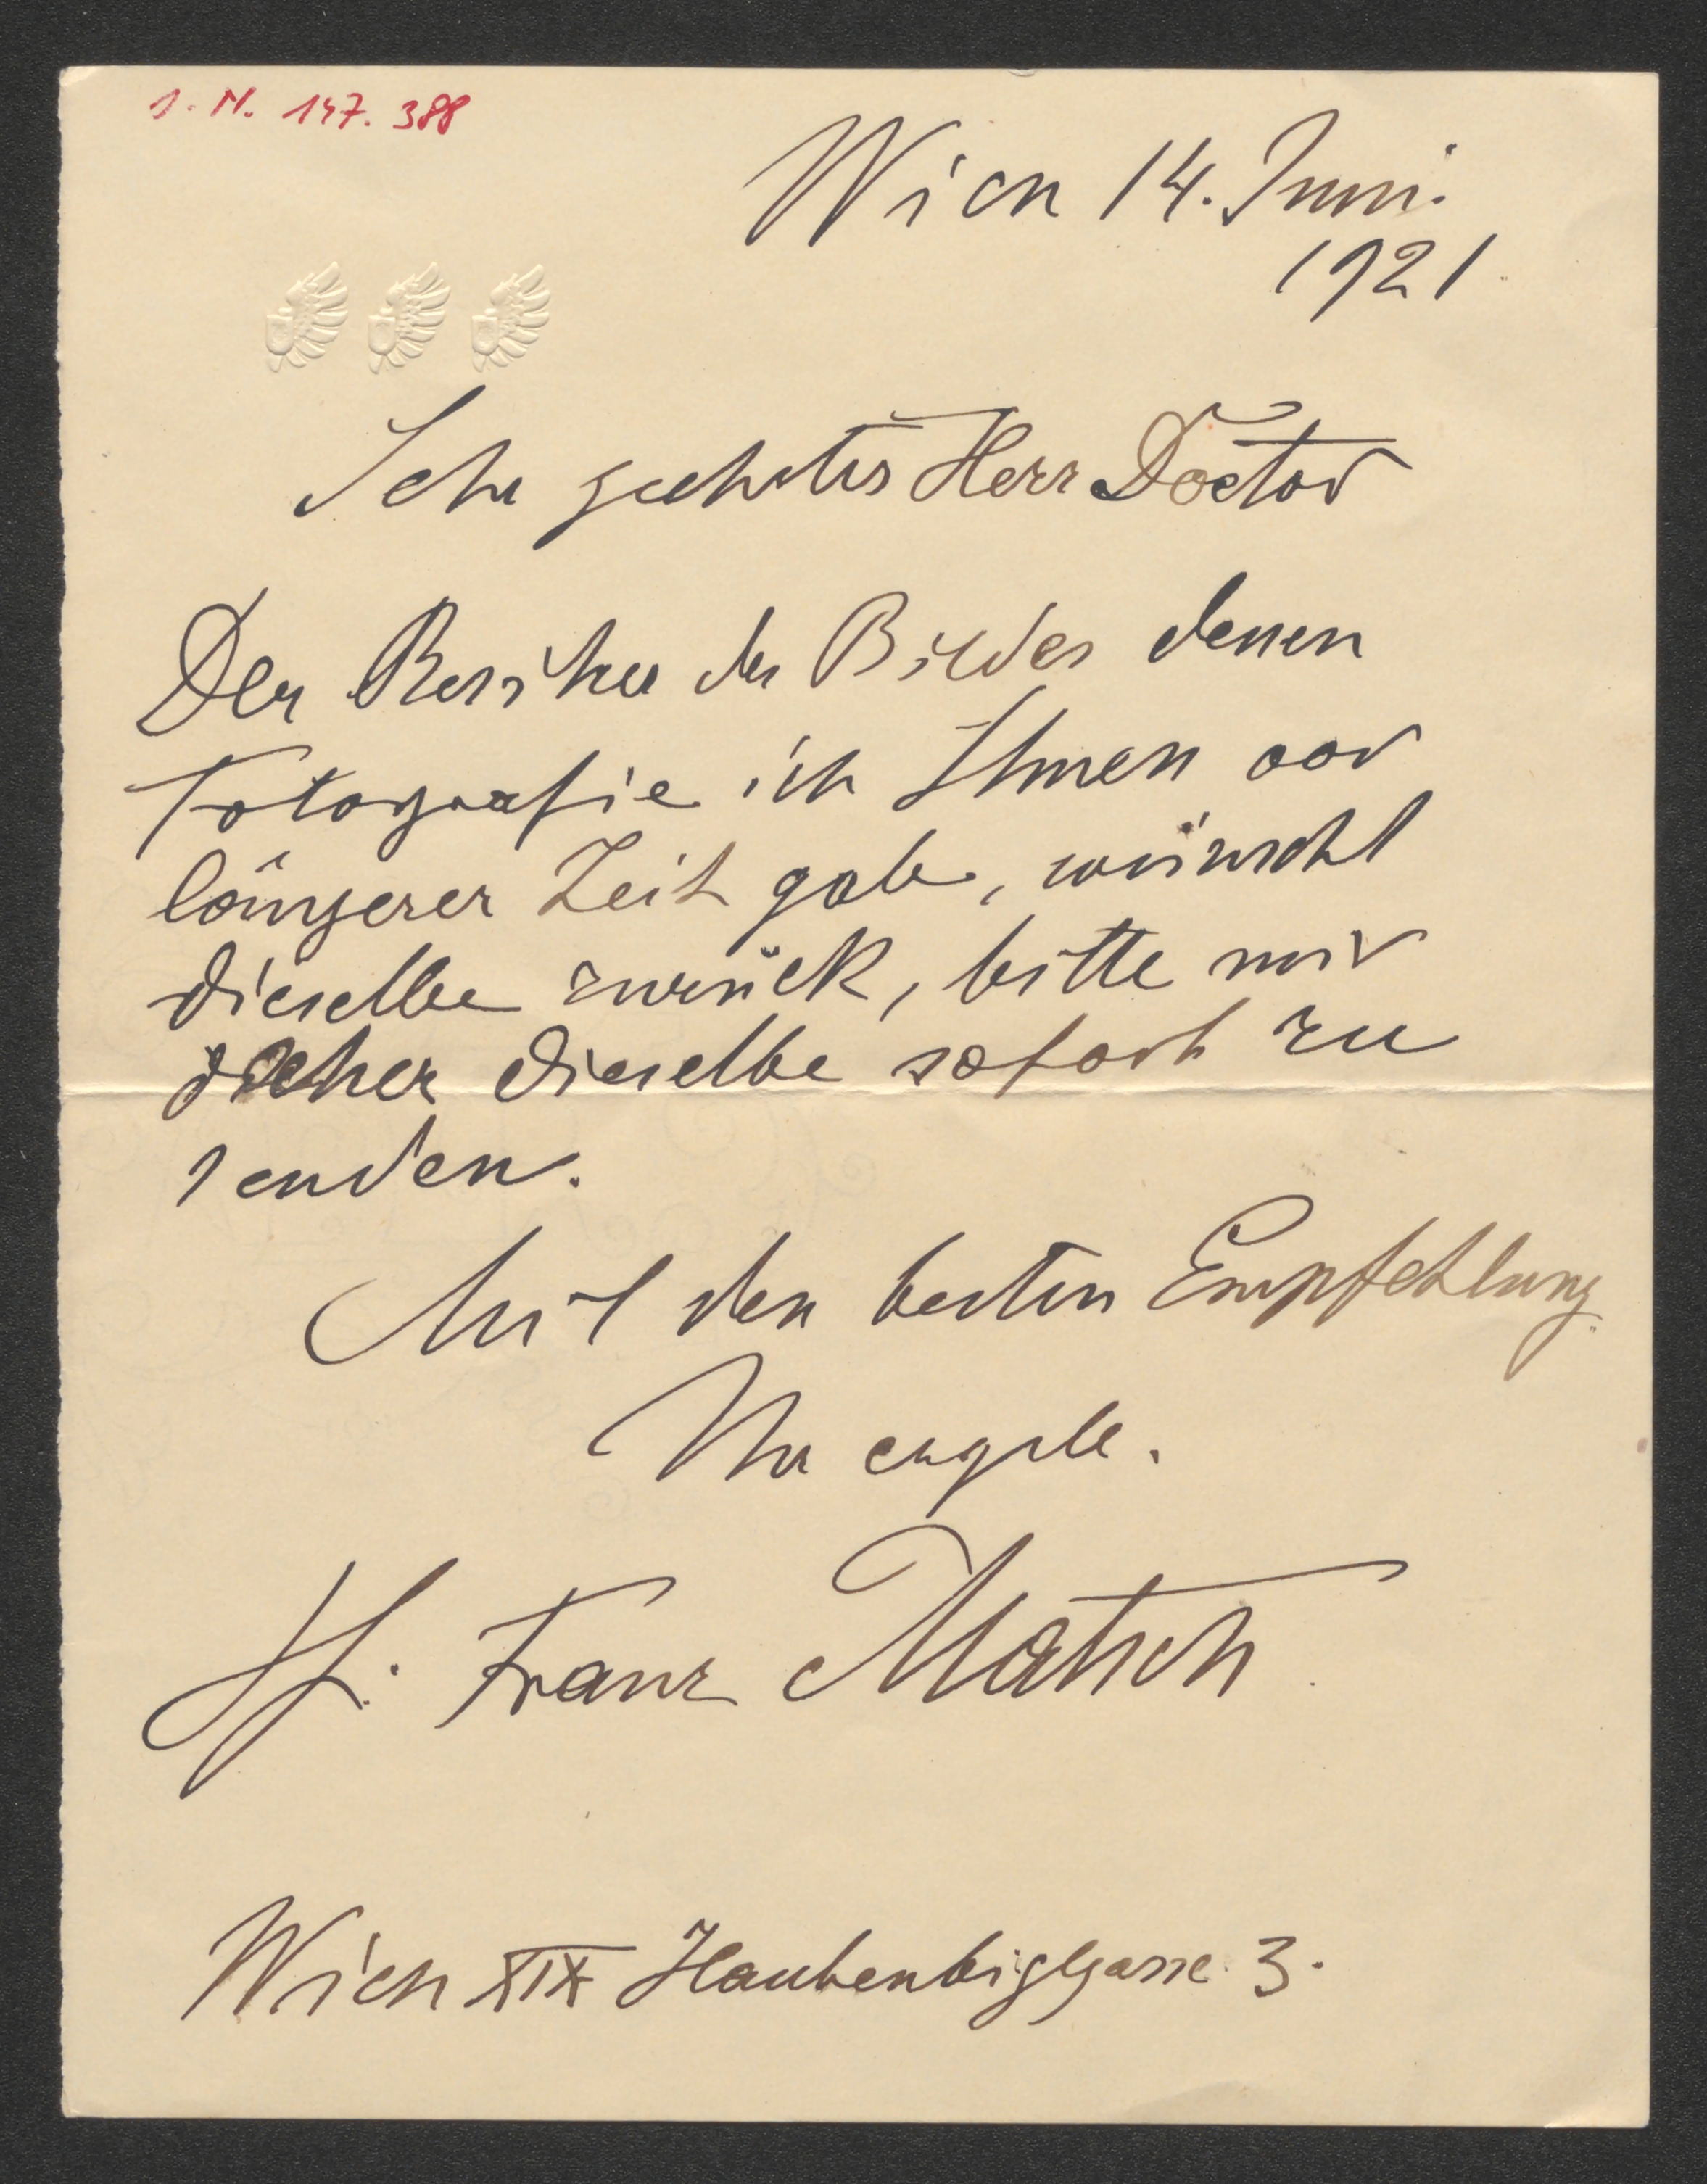 I. N. 147.388
Wien 14. Juni.
1921.
Sehr geehrter Herr Doctor
Der Besitzer des Bildes dessen
Fotografie ich Ihnen vor
längerer Zeit gab, wünscht
dieselbe zurück, bitte mir
daher dieselbe sofort zu
senden.
Mit den besten Empfehlung
Ihr ergeb.
Pf. Franz Matsch
Wien XIX Haubenbiglgasse 3.